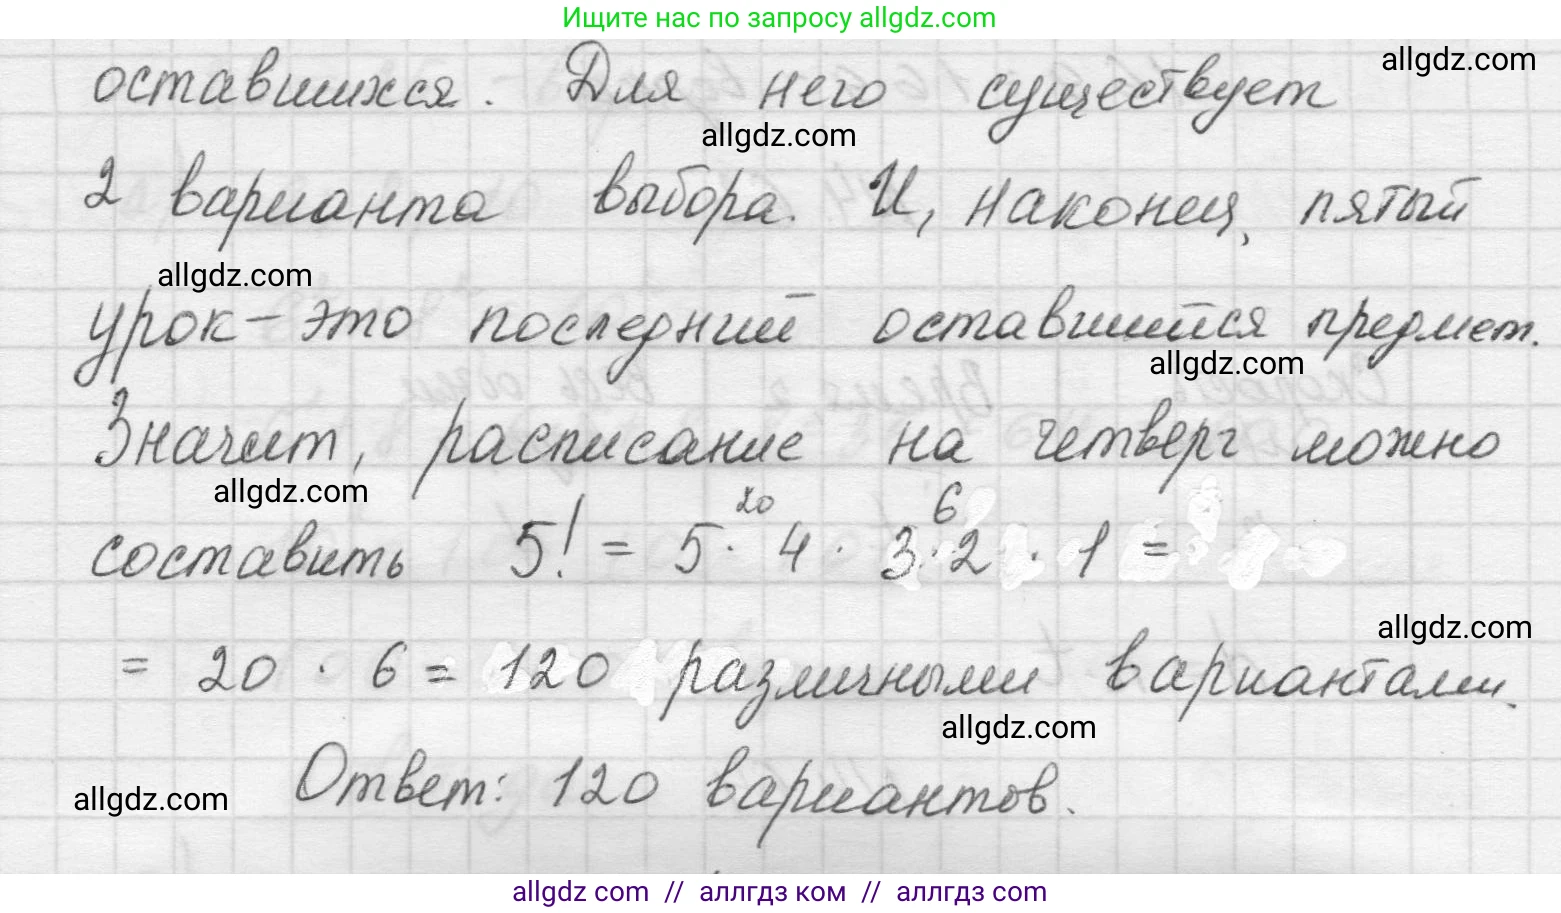 Ищите нас по запросу allgdz.com
allgdz.com
оставшихся. Для него существует
allgdz.com
2 варианта выбора. И, наконец, пятый
allgdz.com
урок - это последний оставшийся предмет.
allgdz.com
Значит, расписание на четверг можно
allgdz.com
20 6
составить 5! = 5 · 4 · 3 · 2 · 1 =
allgdz.com
= 20 · 6 = 120 различными вариантами.
allgdz.com
Ответ: 120 вариантов.
allgdz.com
allgdz com // аллгдз ком // аллгдз com